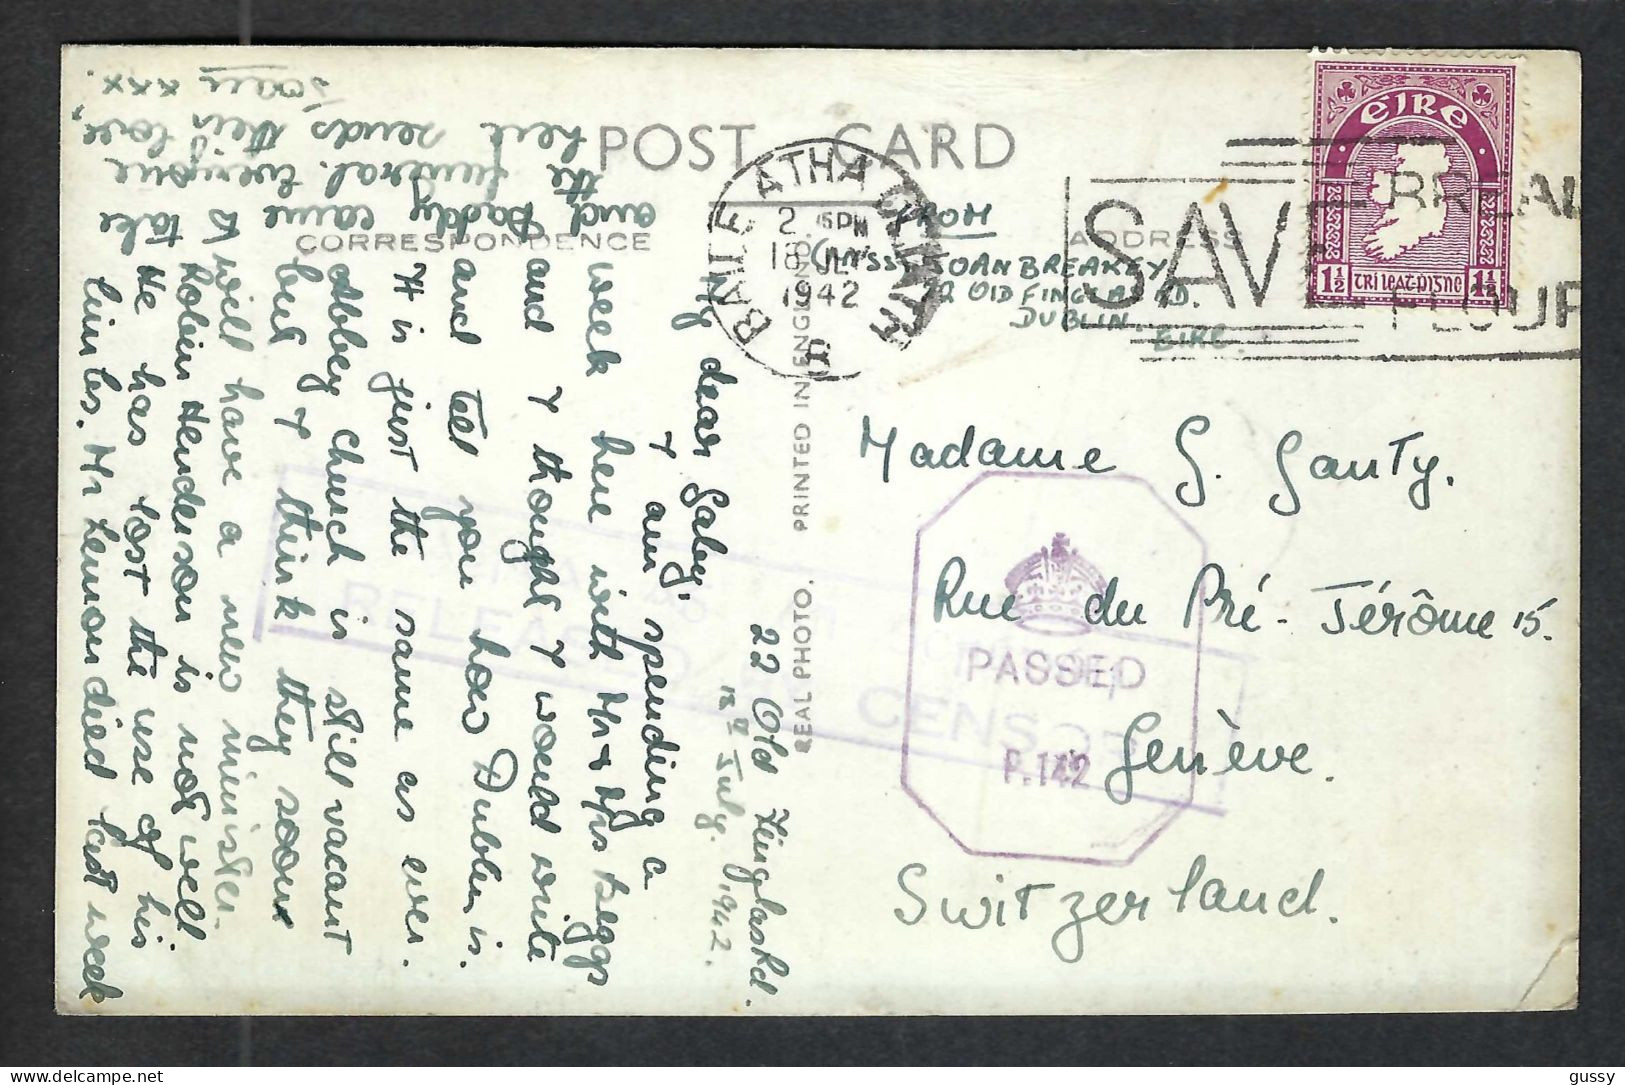 POST CARD
CORRESPONDENCE
ADDRESS
REAL PHOTO. PRINTED IN ENGLAND.
BAILE ATHA CLIATH
2 15PM
18 JL
1942
SAVE BREAD
FLOUR
ÉIRE
1½ TRÍ LEATPISNE 1½
FROM
(MISS) JOAN BREAKEY
22 OLD FINGLAS RD.
DUBLIN.
EIRE.
Madame G. Gauty.
Rue du Pré-Jérôme 15.
Genève.
Switzerland.
PASSED
P.142
RELEASED BY CENSOR
22 Old Finglas Rd.
12th July. 1942.
My dear Gaby,
I am spending a
week here with Mr & Mrs Beggs
and I thought I would write
and tell you how Dublin is.
It is just the same as ever.
Abbey church is still vacant
but I think they soon
will have a new minister.
Robin Henderson is not well
He has lost the use of his
limbs. Mr Lemon died last week
and Daddy came to take
the funeral. Everyone
here sends their love,
Joan xxx.